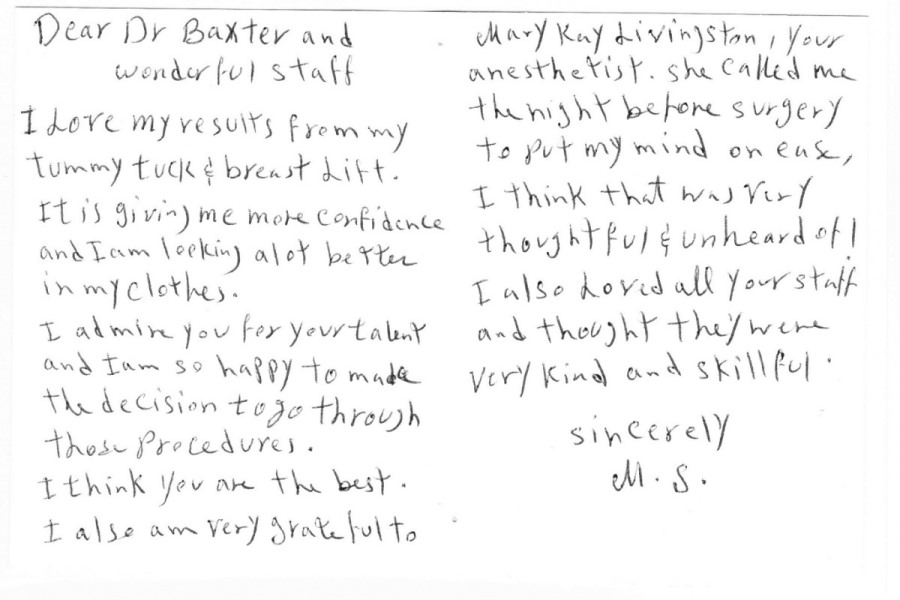 Dear Dr Baxter and
wonderful staff
I Love my results from my
tummy tuck & breast Lift.
It is giving me more confidence
and I am looking alot better
in my clothes.
I admire you for your talent
and I am so happy to made
the decision to go through
those procedures.
I think you are the best.
I also am very grateful to
Mary Kay Livingston, your
anesthetist. she called me
the night before surgery
to put my mind on ease,
I think that was very
thoughtful & unheard of!
I also Loved all your staff
and thought they were
very kind and skillful.
sincerely
M. S.